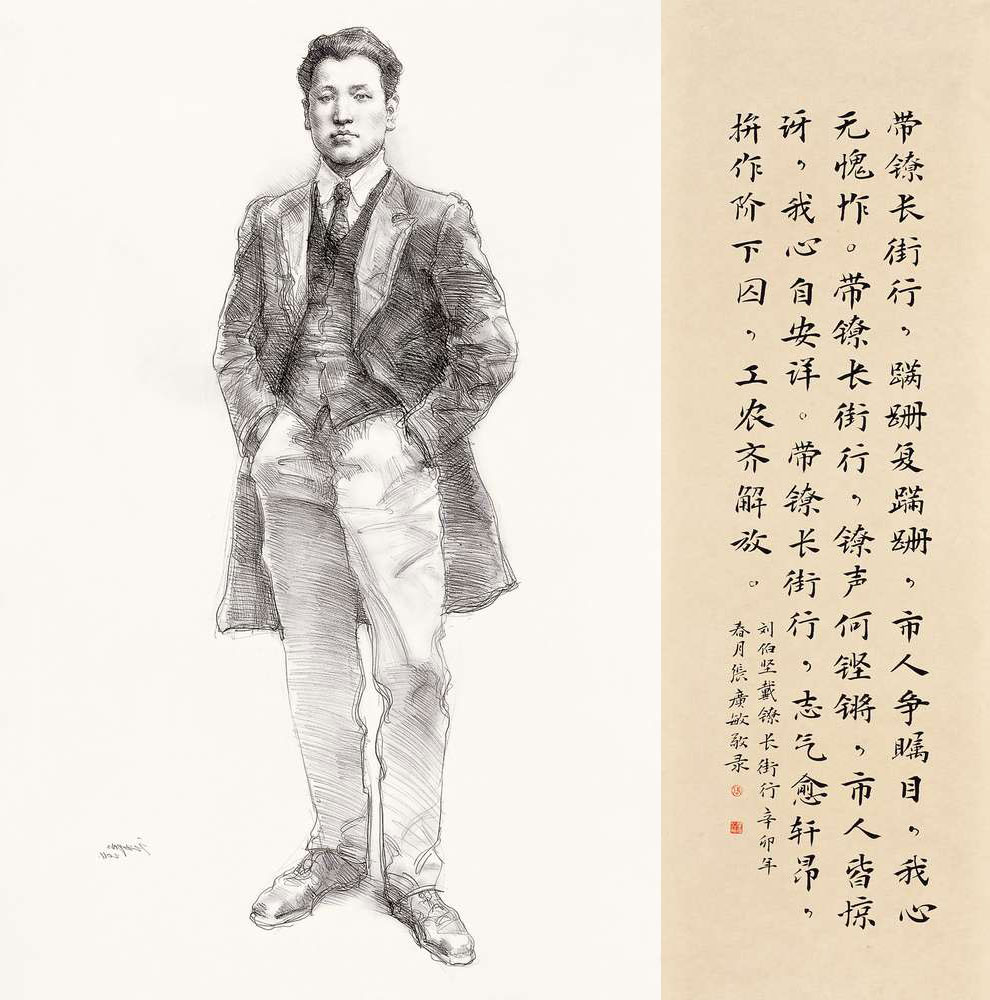 带镣长街行，蹒跚复蹒跚，市人争瞩目，我心
无愧怍。带镣长街行，镣声何铿锵，市人皆惊
讶，我心自安详。带镣长街行，志气愈轩昂，
拚作阶下囚，工农齐解放。
刘伯坚戴镣长街行辛卯年
春月张广敏敬录